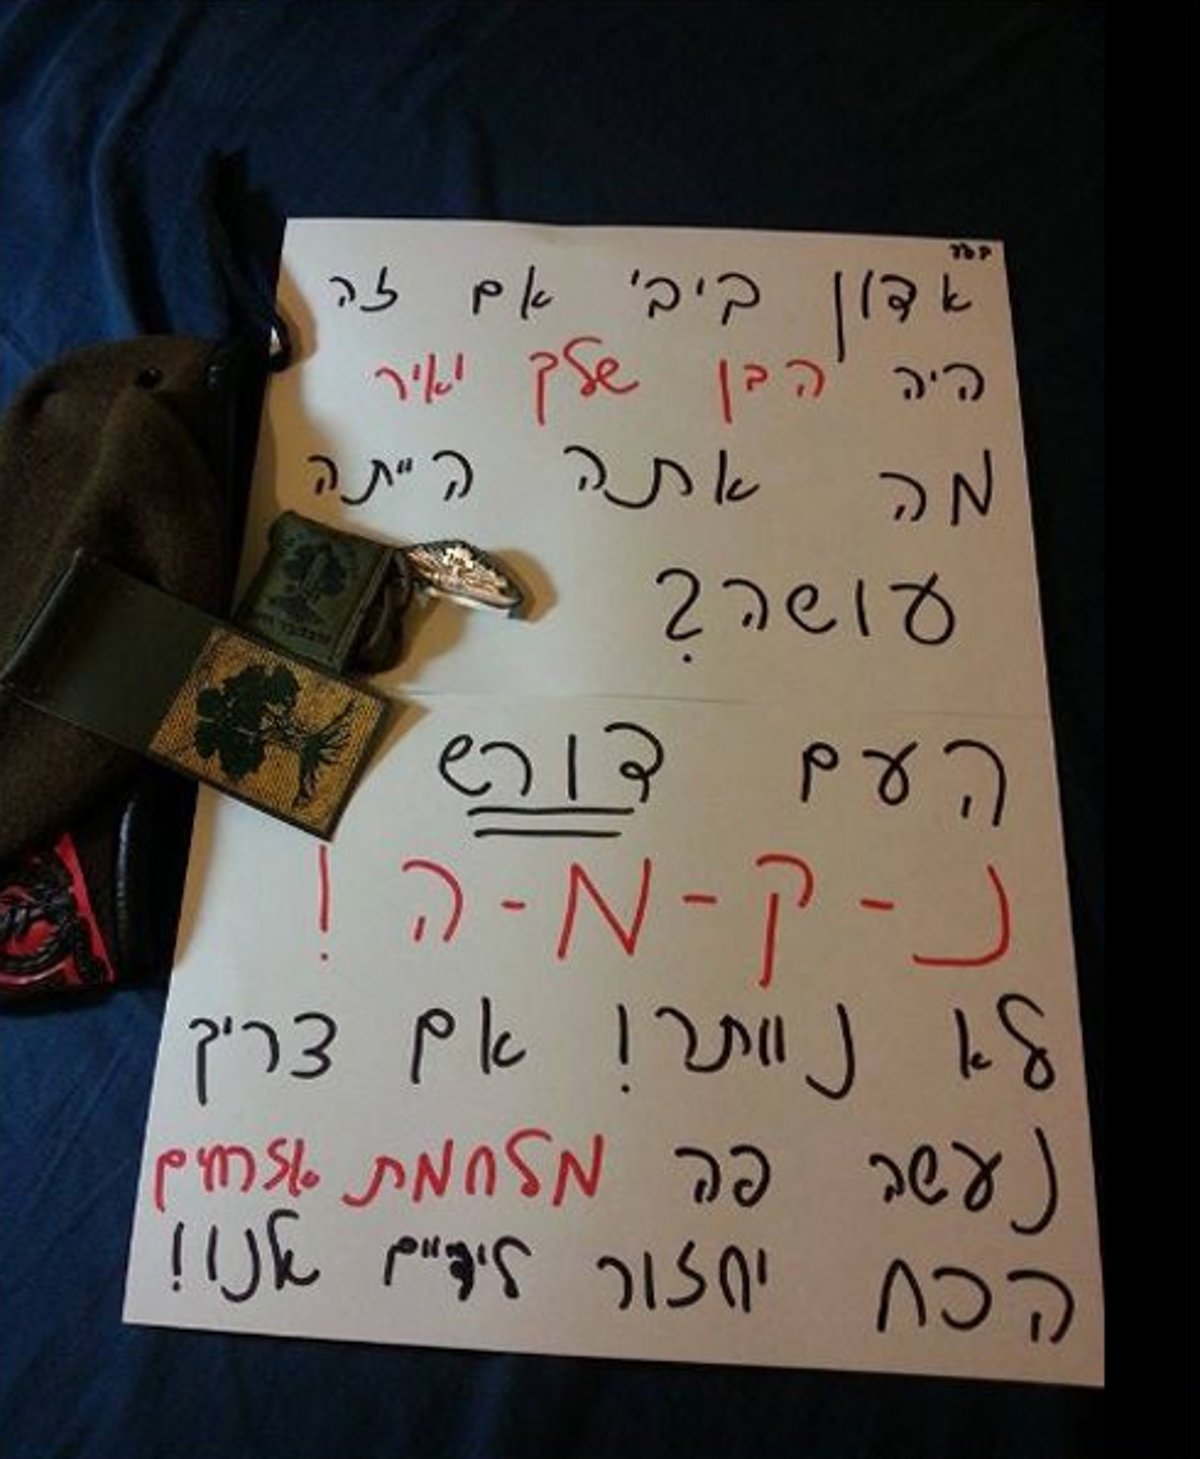 בס״ד
אדון ביבי אם זה
היה הבן שלך יאיר
מה אתה הייתה
עושה?
העם דורש
נ-ק-מ-ה!
לא נוותר! אם צריך
נעשה פה מלחמת אזרחים
הכח יחזור לידיים אלנו!